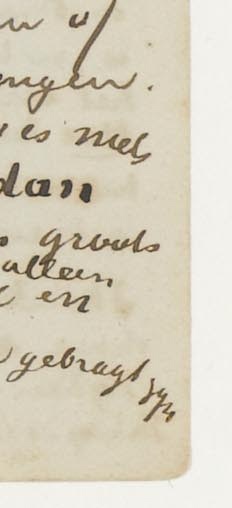 ngen.
es niets
dan
groots
alleen
en
gebragt zyn